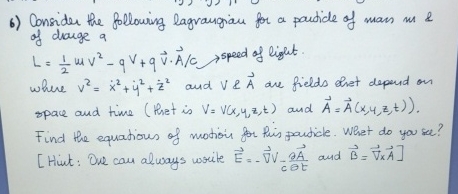 6) Consider the following lagrangian for a particle of mass m &
of charge q
L = ½ m v² - q V + q v⃗ · A⃗/c → speed of light.
where v² = ẋ² + ẏ² + ż² and V & A⃗ are fields that depend on
space and time (that is V = V(x,y,z,t) and A⃗ = A⃗(x,y,z,t)).
Find the equations of motion for this particle. What do you see?
[Hint: One can always write E⃗ = -∇⃗V - ∂A⃗/c∂t and B⃗ = ∇⃗×A⃗]